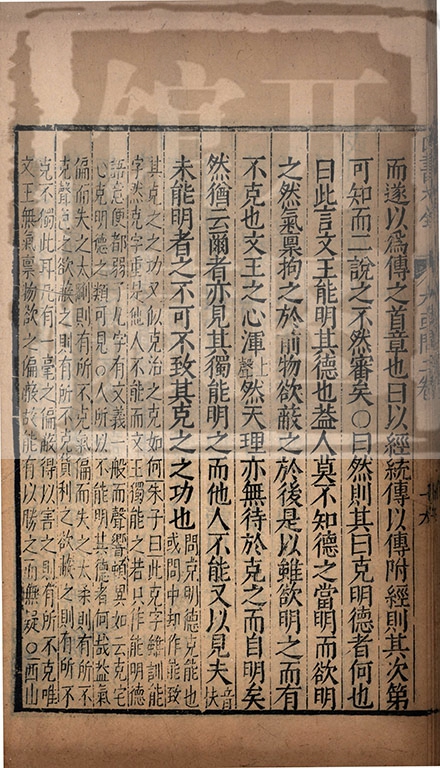 而遂以為傳之首章也曰以經統傳以傳附經則其次第
可知而二說之不然審矣○曰然則其曰克明德者何也
曰此言文王能明其德也蓋人莫不知德之當明而欲明
之然氣稟拘之於前物欲蔽之於後是以雖欲明之而有
不克也文王之心渾上聲然天理亦無待於克之而自明矣
然猶云爾者亦見其獨能明之而他人不能又以見夫音扶
未能明者之不可不致其克之之功也問克明德克能也
或問中却作能致
其克之之功又似克治之克如何朱子曰此克字雖訓能
字然克字重是他人不能而文王獨能之若只作能明德
語意便都弱了凡字有文義一般而聲響頓異如云克宅
心克明德之類可見○人所以不能明其德者何哉蓋氣
偏而失之太剛則有所不克氣偏而失之太柔則有所不
克聲色之欲蔽之則有所不克貨利之欲蔽之則有所不
克不獨此耳凡有一毫之偏蔽得以害之則有所不克唯
文王無氣稟物欲之偏蔽故能有以勝之而無疑○西山